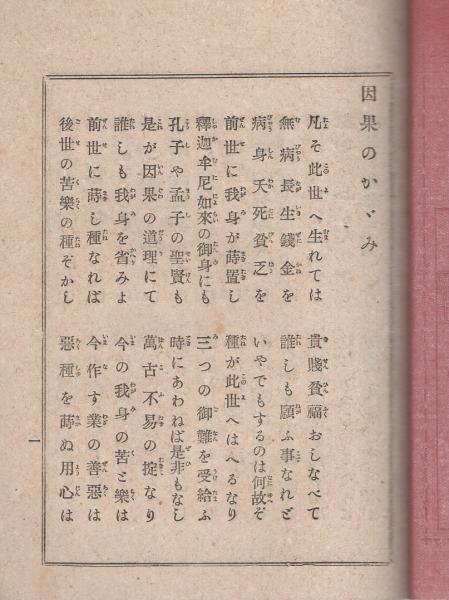 因果のかゞみ
凡そ此世へ生れては 貴賤貧福おしなべて
無病長生錢金を 誰しも願ふ事なれど
病身夭死貧乏を いやでもするのは何故ぞ
前世に我身が蒔置し 種が此世へはへるなり
釋迦牟尼如來の御身にも 三つの御難を受給ふ
孔子や孟子の聖賢も 時にあわねば是非もなし
是が因果の道理にて 萬古不易の掟なり
誰しも我身を省みよ 今の我身の苦と樂は
前世に蒔し種なれば 今作す業の善惡は
後世の苦樂の種ぞかし 惡種を蒔ぬ用心は
一